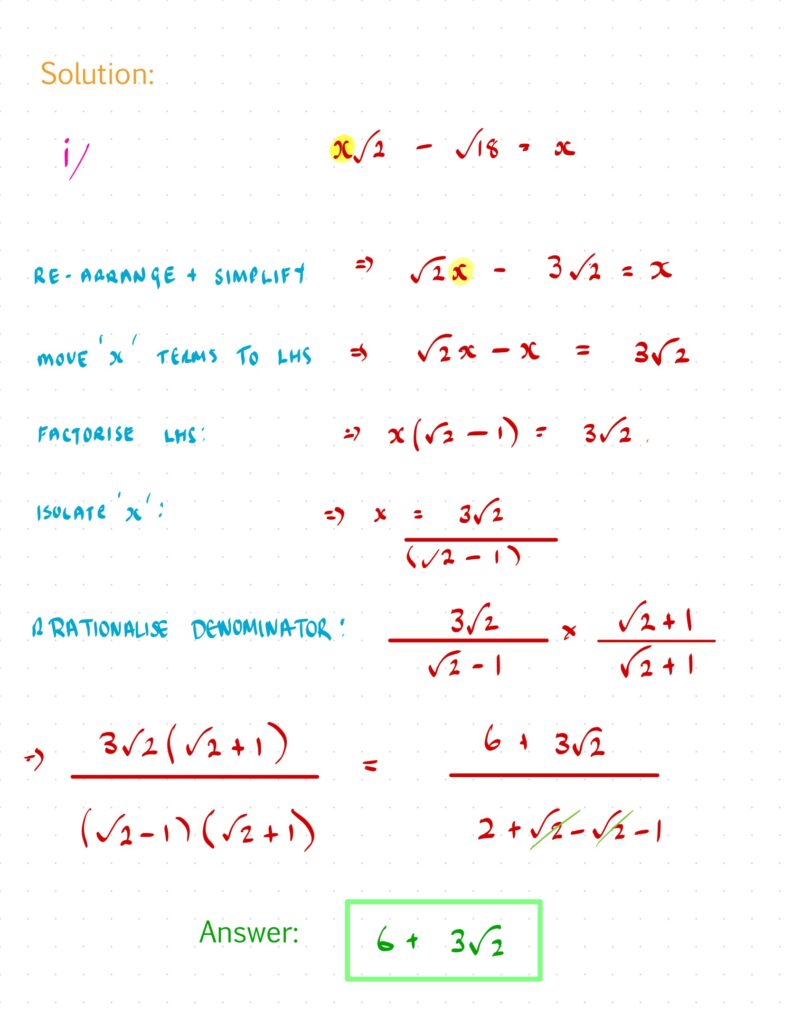 Solution:
i/ x√2 - √18 = x
RE-ARRANGE + SIMPLIFY => √2x - 3√2 = x
MOVE 'x' TERMS TO LHS => √2x - x = 3√2
FACTORISE LHS: => x(√2 - 1) = 3√2.
ISOLATE 'x': => x = 3√2
(√2 - 1)
RATIONALISE DENOMINATOR: 3√2 × √2 + 1
√2 - 1 √2 + 1
=> 3√2(√2 + 1) = 6 + 3√2
(√2 - 1)(√2 + 1) 2 + √2 - √2 - 1
Answer: 6 + 3√2